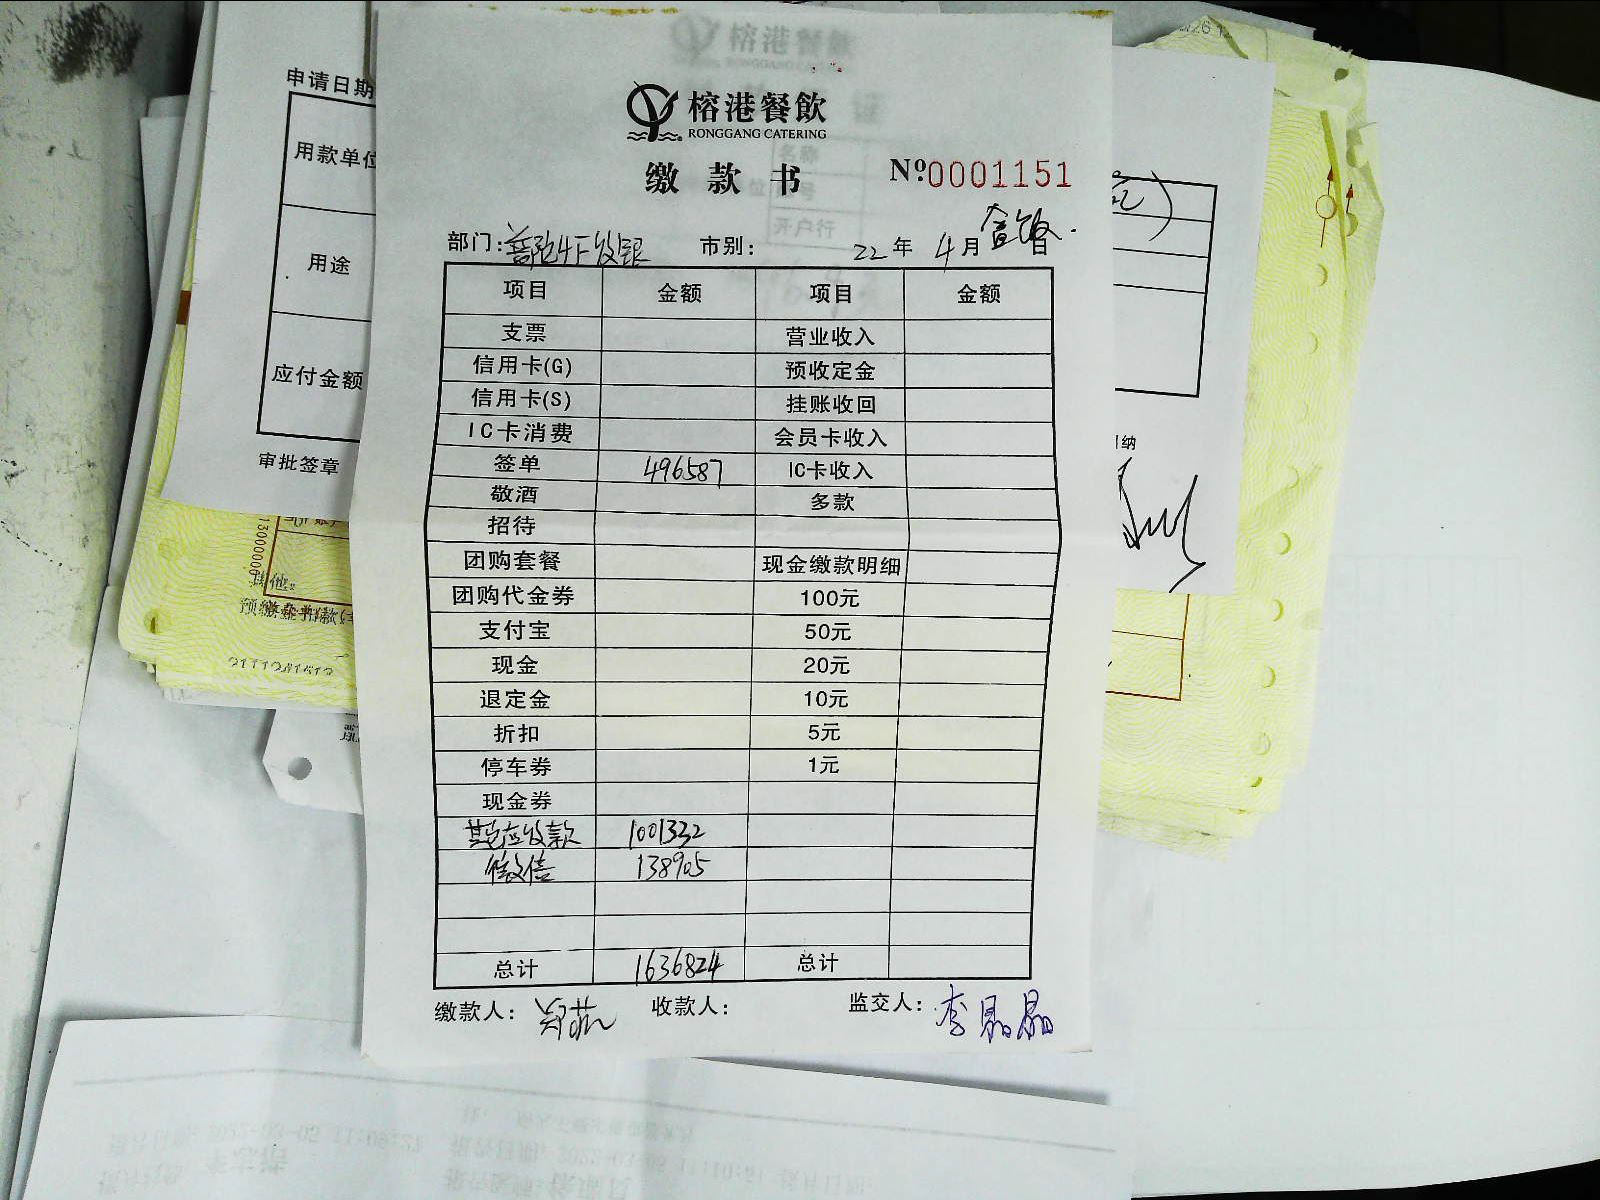 榕港餐飲
RONGGANG CATERING
缴款书 №0001151
部门: 市别: 22年 4月 日
项目 金额 项目 金额
支票 营业收入
信用卡(G) 预收定金
信用卡(S) 挂账收回
IC卡消费 会员卡收入
签单 496587 IC卡收入
敬酒 多款
招待
团购套餐 现金缴款明细
团购代金券 100元
支付宝 50元
现金 20元
退定金 10元
折扣 5元
停车券 1元
现金券
其它应收款 1001332
微信 138905
总计 1636824 总计
缴款人: 收款人: 监交人: 李晶晶
申请日期
用款单位
用途
应付金额
审批签章
纳
名称
号
开户行